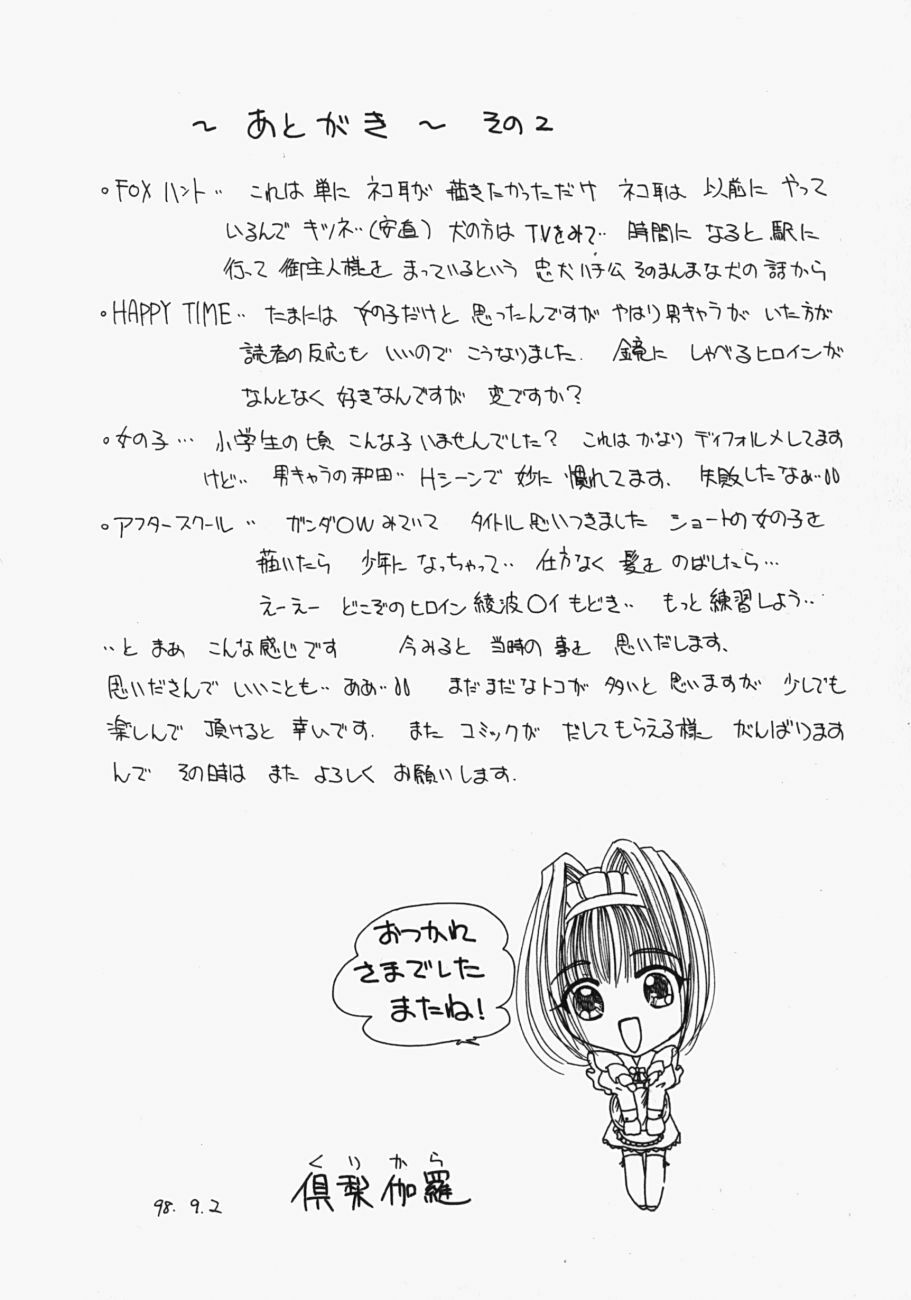 ～ あとがき ～ その2
・FOXハント‥ これは単に ネコ耳が 描きたかっただけ ネコ耳は 以前に やって
いるんで キツネ‥(安直) 犬の方は TVをみて‥ 時間に なると 駅に
行って 御主人様を まっているという 忠犬ハチ公 そのまんまな犬の話から
・HAPPY TIME‥ たまには 女の子だけと 思ったんですが やはり男キャラが いた方が
読者の反応も いいので こうなりました. 鏡に しゃべるヒロインが
なんとなく 好きなんですが 変ですか?
・女の子… 小学生の頃 こんな子いませんでした? これは かなり ディフォルメしてます
けど‥ 男キャラの和田‥ Hシーンで 妙に 慣れてます、 失敗したなぁ‥
・アフタースクール ‥ ガンダ○W みていて タイトル思いつきました ショートの女の子を
描いたら 少年に なっちゃって‥ 仕方なく 髪を のばしたら…
えーえー どこぞのヒロイン 綾波○イもどき‥ もっと練習しよう‥
‥と まあ こんな感じです 今みると 当時の 事を 思いだします、
思いださんで いいことも‥ ああ‥ まだまだなトコが 多いと 思いますが 少しでも
楽しんで 頂けると 幸いです. また コミックが だしてもらえる様 がんばります
んで その時は また よろしく お願いします.
おつかれ
さまでした
またね!
くりから
倶梨伽羅
98. 9. 2